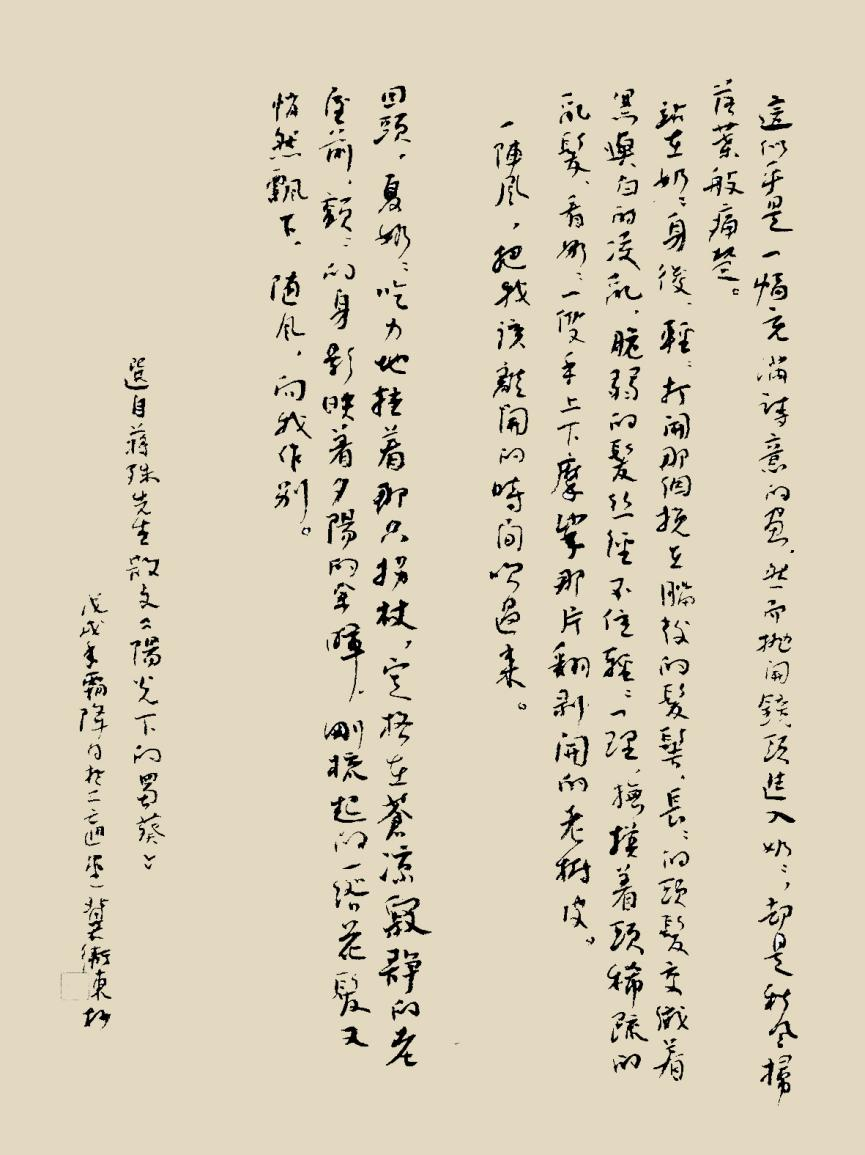 這似乎是一幅充滿詩意的畫，然而抛開鏡頭進入奶ミ，却是秋風掃
落葉般痛楚。
站在奶ミ身後，輕ミ打開那個挽在腦後的髮髻，長ミ的頭髮交織着
黑與白的凌亂，脆弱的髮丝經不住輕ミ一理，撫摸着頭稀疏的
亂髮，看奶ミ一雙手上下摩挲那片翻剥開的老樹皮。
一陣風，把我该離開的時间吹過來。
回頭，夏奶ミ吃力地拄着那只拐杖，定格在蒼凉寂静的老
屋前，顫ミ的身影映着夕陽的金暉，刚梳起的一绺花髮又
悄然飄下，随风，向我作别。
選自蔣殊先生散文《陽光下的蜀葵》
戊戌年霜降日於二 冀衛東抄